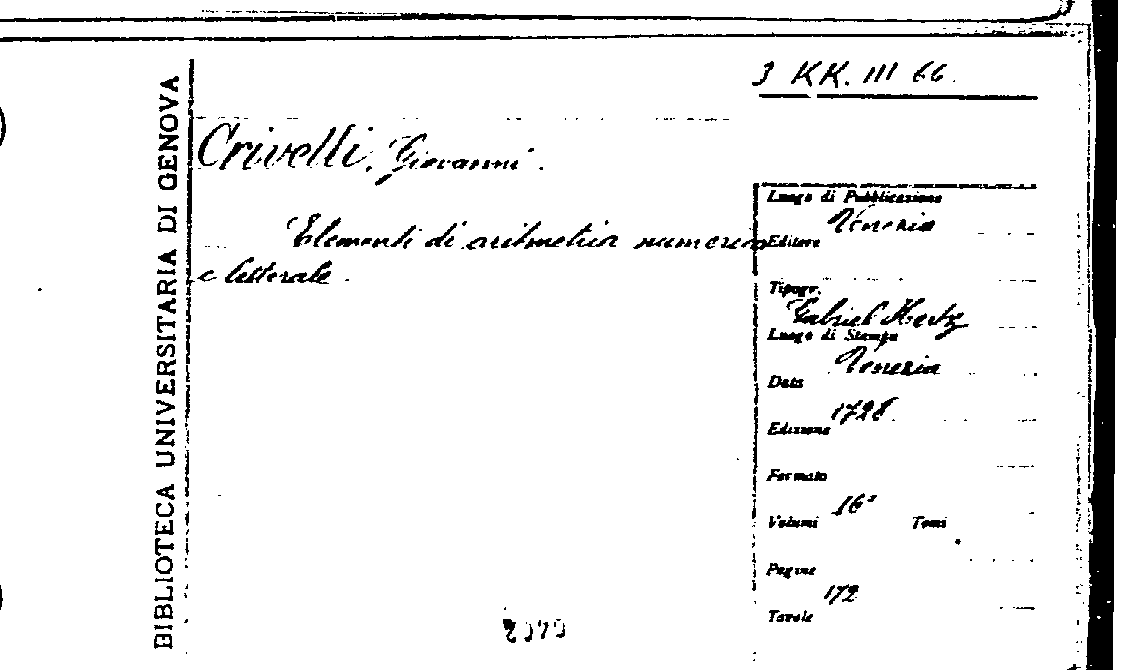 3 KK. III 66.
BIBLIOTECA UNIVERSITARIA DI GENOVA
Crivelli, Giovanni.
Elementi di aritmetica numerica
e letterale.
Luogo di Pubblicazione
Venezia
Editore
Tipogr.
Gabriel Hertz
Luogo di Stampa
Venezia
Data
1728
Edizione
Formato
16°
Volumi Tomi
Pagine
172
Tavole